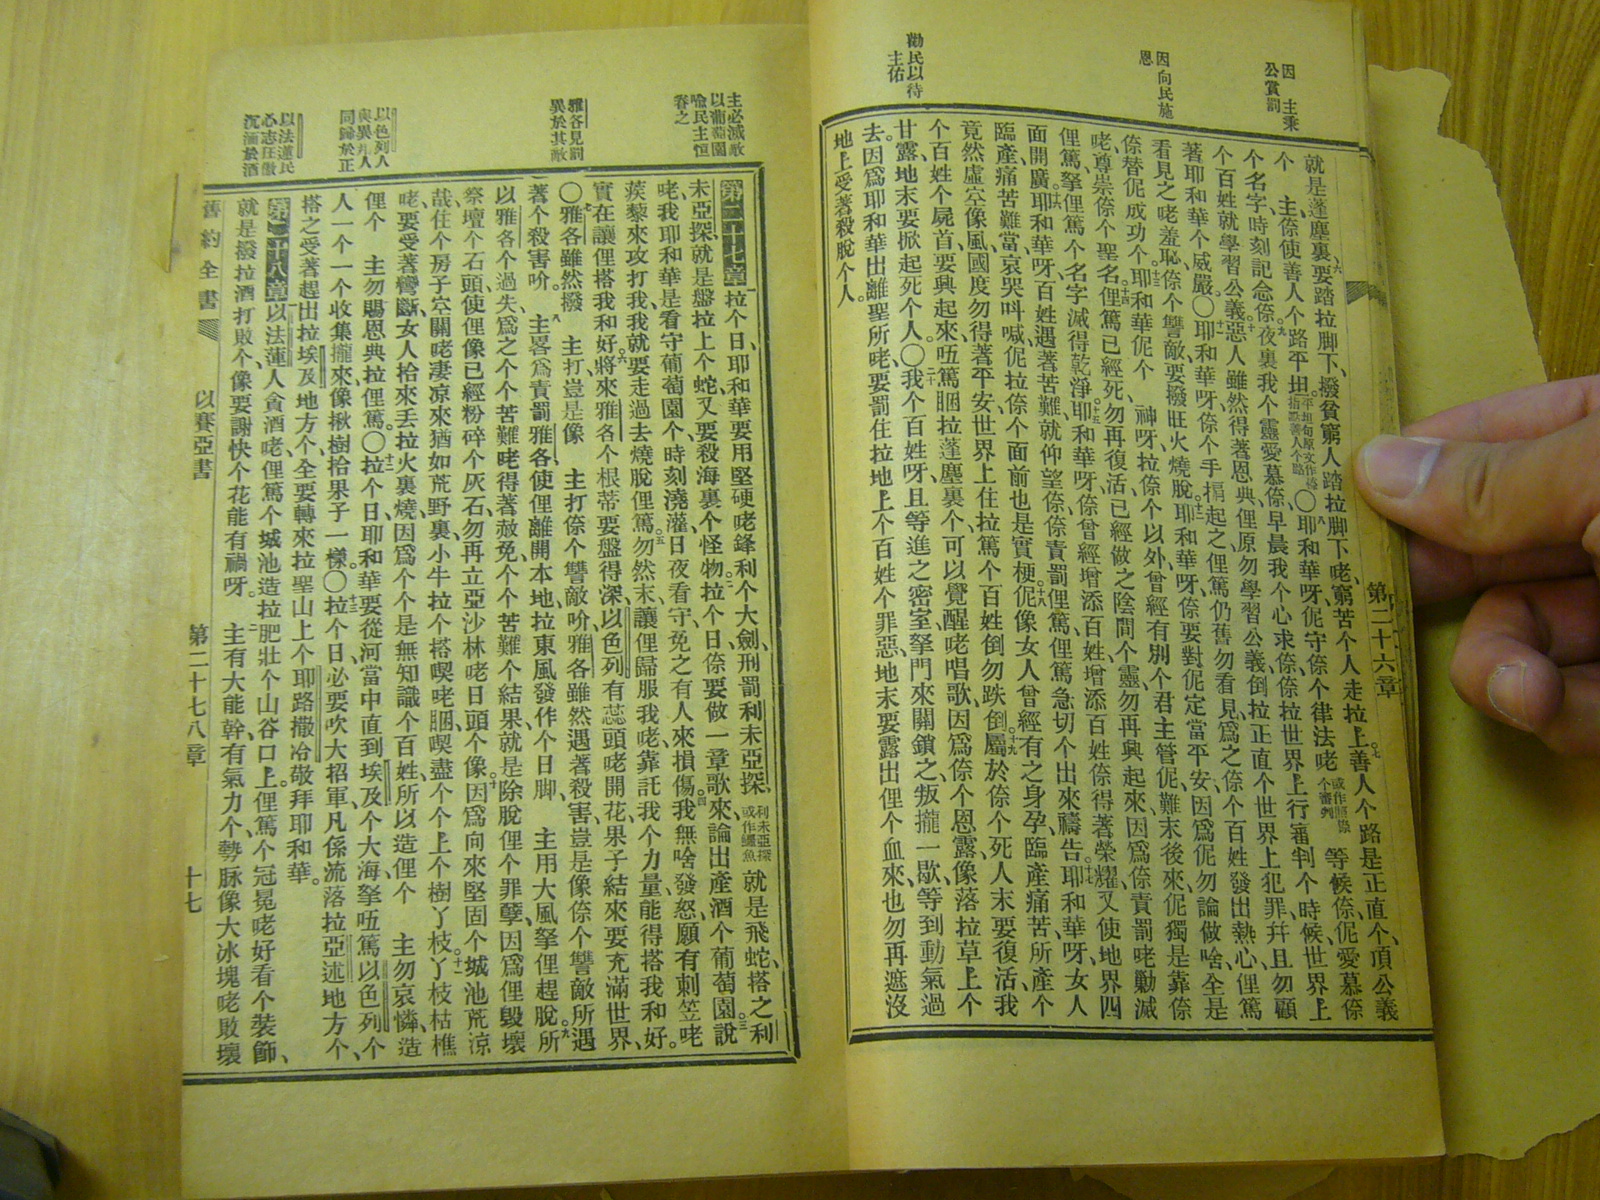 因 主秉
公賞罰
因向民施
恩
勸民以待
主佑
第二十六章
就是蓬塵裏、六要踏拉脚下、撥貧窮人踏拉脚下咾、窮苦个人走拉上。七善人个路、是正直个、頂公義
个 主、㑚使善人个路平坦。八〇耶和華呀、伲守㑚个律法咾 等候㑚、伲愛慕㑚
个名字、時刻記念㑚。九夜裏我个靈愛慕㑚、早晨我个心求㑚、㑚拉世界上行審判个時候、世界上
个百姓就學習公義。十惡人雖然得著恩典、俚原勿學習公義、倒拉正直个世界上犯罪、并且勿顧
著耶和華个威嚴。〇十一耶和華呀、㑚个手揭起之、俚篤仍舊勿看見、爲之㑚个百姓發出熱心、俚篤
看見之咾羞恥、㑚个讐敵、要撥旺火燒脫。十二耶和華呀、㑚要對伲定當平安、因爲伲勿論做啥、全是
㑚替伲成功个。十三耶和華伲个 神呀、拉㑚个以外、曾經有別个君主管伲、難末後來、伲獨是靠㑚
咾、尊崇㑚个聖名。十四俚篤已經死、勿再復活、已經做之陰間个靈、勿再興起來、因爲㑚責罰咾勦滅
俚篤、拏俚篤个名字滅得乾淨。十五耶和華呀、㑚曾經增添百姓、增添百姓、㑚得著榮耀、又使地界四
面開廣。十六耶和華呀、百姓遇著苦難、就仰望㑚、㑚責罰俚篤、俚篤急切个出來禱告。十七耶和華呀、女人
臨產、痛苦難當、哀哭叫喊、伲拉㑚个面前也是實梗。十八伲像女人曾經有之身孕、臨產痛苦、所產个
竟然虛空像風、國度勿得著平安、世界上住拉篤个百姓、倒勿跌倒。十九屬於㑚个死人、末要復活、我
个百姓个屍首、要興起來、㕶篤睏拉蓬塵裏个、可以覺醒咾唱歌、因爲㑚个恩露、像落拉草上个
甘露、地末要掀起死个人。〇二十我个百姓呀、且等進之密室、拏門來關鎖之、叛攏一歇、等到動氣過
去。因爲耶和華出離聖所咾、要罰住拉地上个百姓个罪惡、地末要露出俚个血來、也勿再遮沒
地上受著殺脫个人。
主必滅敵
以葡萄園
喩民主恒
眷之
雅各見罰
異於其敵
以色列人
與異邦人
同歸於正
以法蓮民
必志狂傲
沉湎於酒
第二十七章 拉个日、耶和華要用堅硬咾鋒利个大劍、刑罰利未亞探、利未亞探或作鱷魚 就是飛蛇、搭之利
未亞探、就是盤拉上个蛇、又要殺海裏个怪物。二拉个日、㑚要做一章歌來、論出產酒个葡萄園說
咾、我耶和華是看守葡萄園个、時刻澆灌、日夜看守、免之有人來損傷。四我無啥發怒、願有刺笠咾
蒺藜來攻打我、我就要走過去燒脫俚篤。五勿然末、讓俚歸服我咾、靠託我个力量、能得搭我和好。
實在讓俚搭我和好。六將來雅各个根蒂、要盤得深、以色列有蕊頭咾開花、果子結來要充滿世界。
〇七雅各雖然撥 主打、豈是像 主打㑚个讐敵吤、雅各雖然遇著殺害、豈是像㑚个讐敵所遇
著个殺害吤。八 主畧爲責罰雅各、使俚離開本地、拉東風發作个日脚、 主用大風拏俚趕脫。九所
以雅各个過失、爲之个个苦難咾得著赦免、个个苦難个結果、就是除脫俚个罪孽、因爲俚毀壞
祭壇个石頭、使俚像已經粉碎个灰石、勿再立亞沙林咾日頭个像。十因爲向來堅固个城池荒涼
哉、住个房子空關咾淒涼來猶如荒野裏、小牛拉个搭喫咾睏、喫盡个个上个樹丫枝。十一丫枝枯樵
咾、要受著彎斷、女人拾來丢拉火裏燒、因爲个个是無知識个百姓、所以造俚个 主勿哀憐、造
俚个 主勿賜恩典拉俚篤。〇十二拉个日、耶和華要從河當中直到埃及个大海、拏㕶篤以色列个
人、一个一个收集攏來、像楸樹拾果子一樣。〇十三拉个日、必要吹大招軍、凡係流落拉亞述地方个、
搭之受著趕出拉埃及地方个、全要轉來、拉聖山上个耶路撒冷、敬拜耶和華。
第二十八章 以法蓮人貪酒咾、俚篤个城池造拉肥壯个山谷口上、俚篤个冠冕咾好看个裝飾、
就是撥拉酒打敗个、像要謝快个花、能有禍呀。二 主有大能幹、有氣力个、勢脉像大冰塊咾敗壞
舊約全書 以賽亞書 第二十七八章 十七